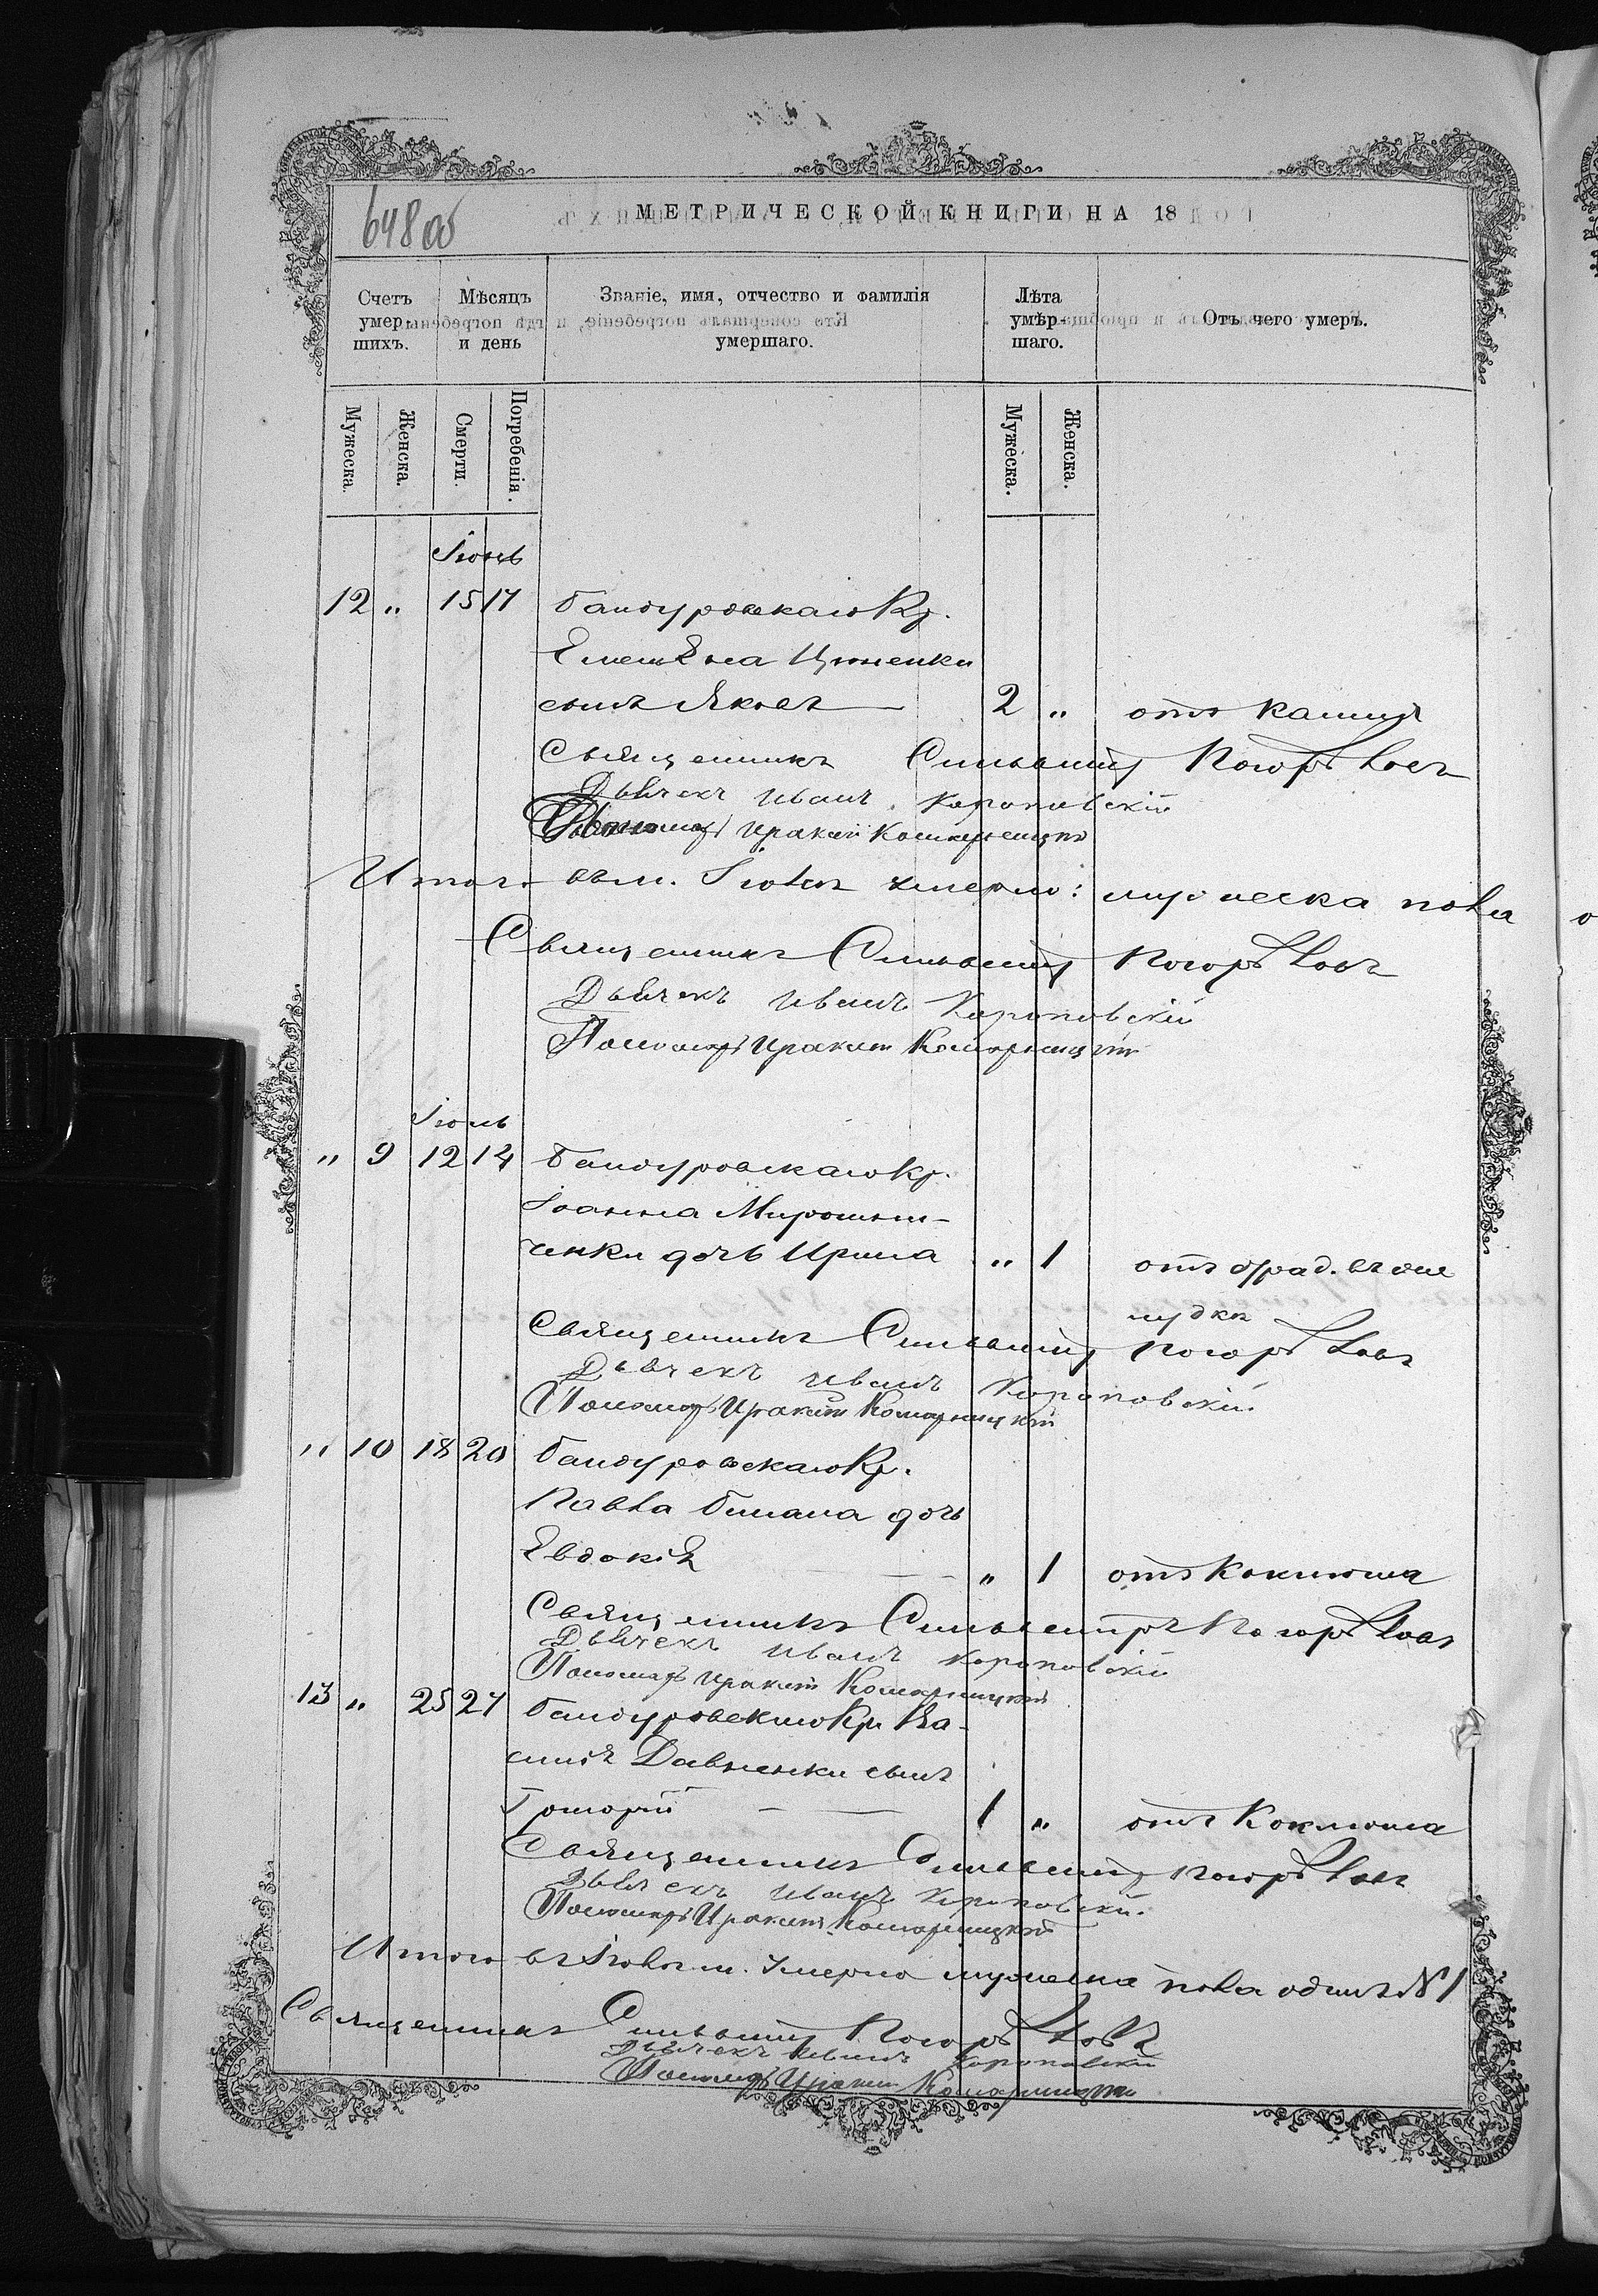 648 об
МЕТРИЧЕСКОЙ КНИГИ НА 18
Счетъ умер- шихъ.
Мѣсяцъ и день
Званіе, имя, отчество и фамилія умершаго.
Лѣта умер- шаго.
Отъ чего умеръ.
Мужеска. Женска. Смерти. Погребенія. Мужеска. Женска.
Іюнь
12 " 15 17 Бандуровскаго Кр.
сынъ Яковъ — 2 " отъ кашля
Священникъ Сильвестръ Погорѣловъ
Дьячекъ Иванъ Короповскій
Пономарь Ираклій Комарницкій
Итого въ м. Іюнѣ умерло: мужеска пола
Священникъ Сильвестръ Погорѣловъ
Дьячекъ Иванъ Короповскій
Пономарь Ираклій Комарницкій
Іюль
" 9 12 14 Бандуровскаго Кр.
Іоанна Мирошни-
ченки дочь Ирина " 1 отъ
Священникъ Сильвестръ Погорѣловъ
Дьячекъ Иванъ Короповскій
Пономарь Ираклій Комарницкій
" 10 18 20 Бандуровскаго Кр.
Павла дочь
Евдокія — " 1 отъ Коклюша
Священникъ Сильвестръ Погорѣловъ
Дьячекъ Иванъ Короповскій
Пономарь Ираклій Комарницкій
13 " 25 27 Бандуровскаго Кр. Ва-
силія Давиденки сынъ
Григорій — 1 " отъ Коклюша
Священникъ Сильвестръ Погорѣловъ
Дьячекъ Иванъ Короповскій
Пономарь Ираклій Комарницкій
Итого въ Іюлѣ м. умерло мужеска пола одинъ № 1
Священникъ Сильвестръ Погорѣловъ
Дьячекъ Иванъ Короповскій
Пономарь Ираклій Комарницкій